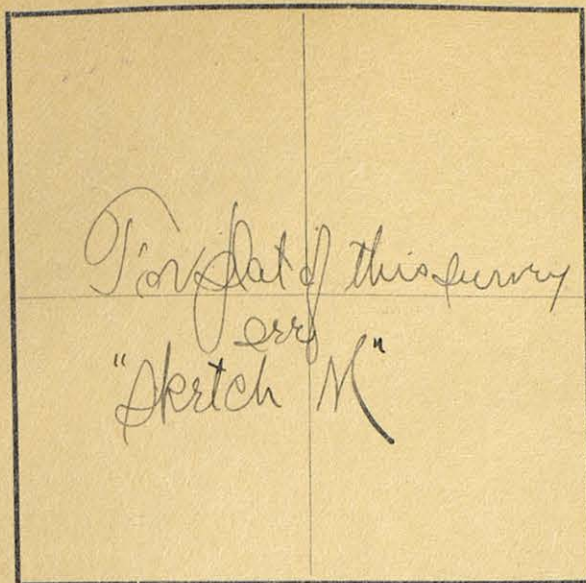 For plat of this survey
see
"Sketch M"